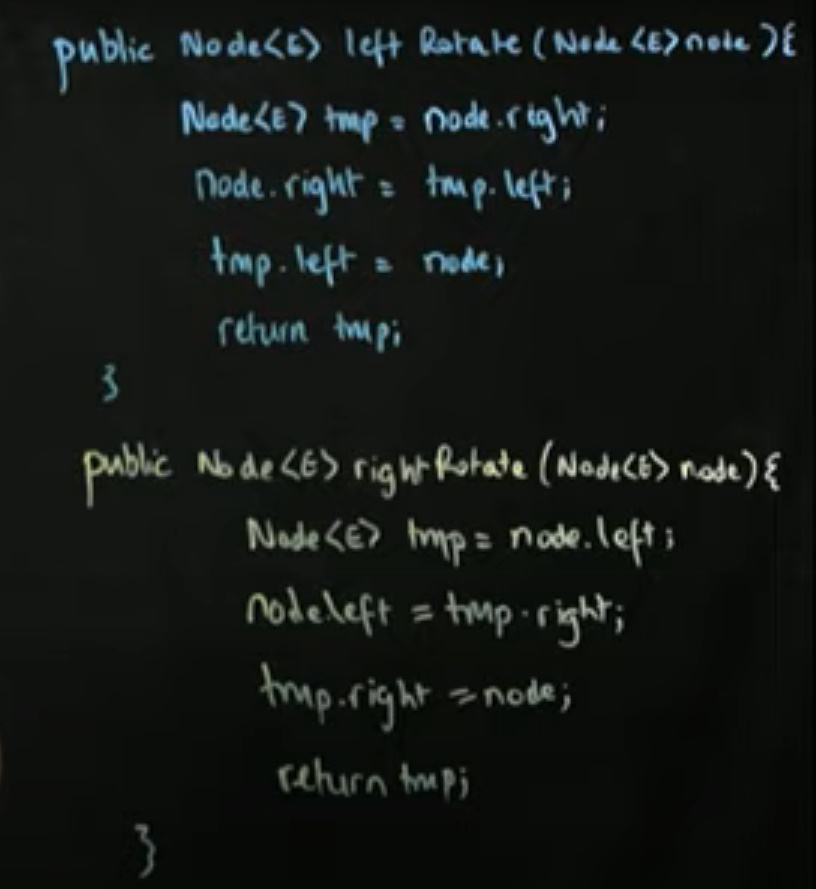 public Node<E> left Rotate (Node <E> node ){
Node<E> tmp = node.right;
node.right = tmp.left;
tmp.left = node;
return tmp;
}
public Node<E> rightRotate (Node<E> node){
Node<E> tmp = node.left;
node.left = tmp.right;
tmp.right = node;
return tmp;
}